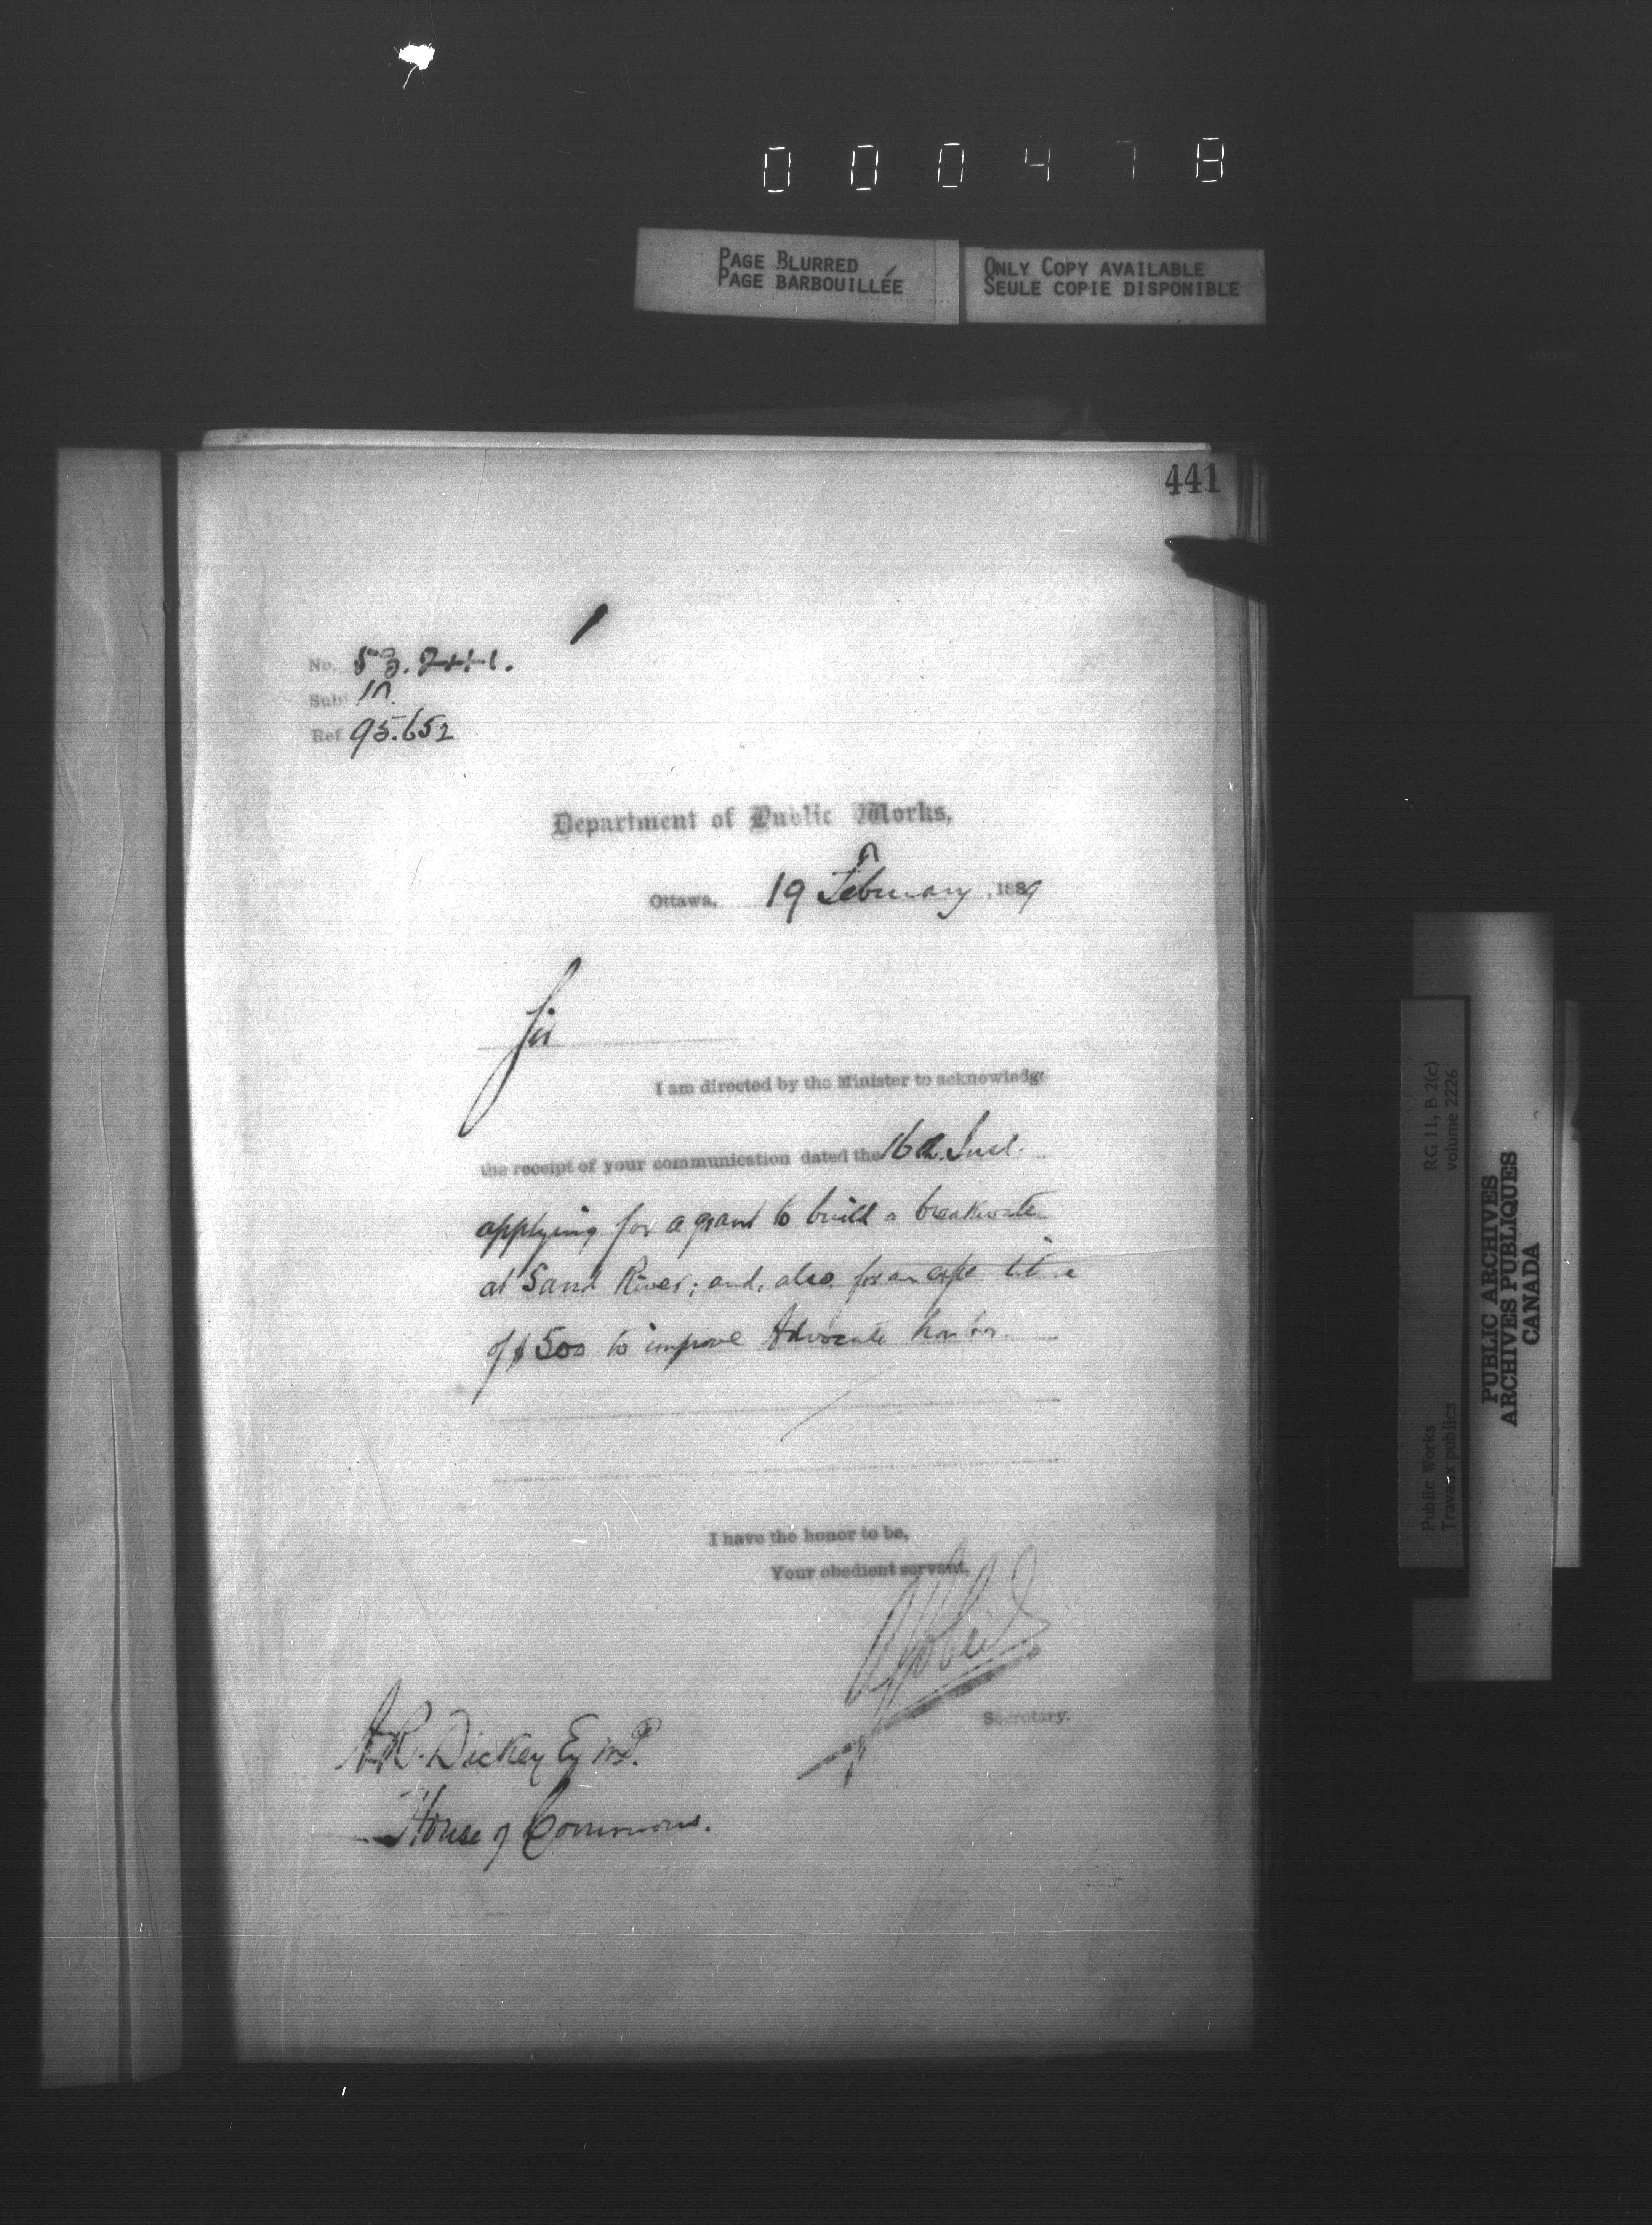 000478
PAGE BLURRED
PAGE BARBOUILLÉE
ONLY COPY AVAILABLE
SEULE COPIE DISPONIBLE
441
No.
Sub
Ref 95.652
Department of Public Works,
Ottawa, 19 February, 1889
Sir
I am directed by the Minister to acknowledge
the receipt of your communication dated the 16th Inst.
applying for a grant to build a breakwater
at Sand River; and, also, for an
of $500 to improve Advocate harbor.
I have the honor to be,
Your obedient servant,
Secretary.
A.R. Dickey Esq M.P.
House of Commons.
RG 11, B 2(c)
volume 2226
Public Works
Travaux publics
PUBLIC ARCHIVES
ARCHIVES PUBLIQUES
CANADA